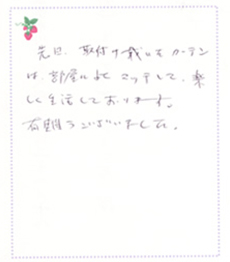 先日、取付け戴いたカーテン
は、部屋によくマッチして、楽
しく生活しております。
有難うございました。